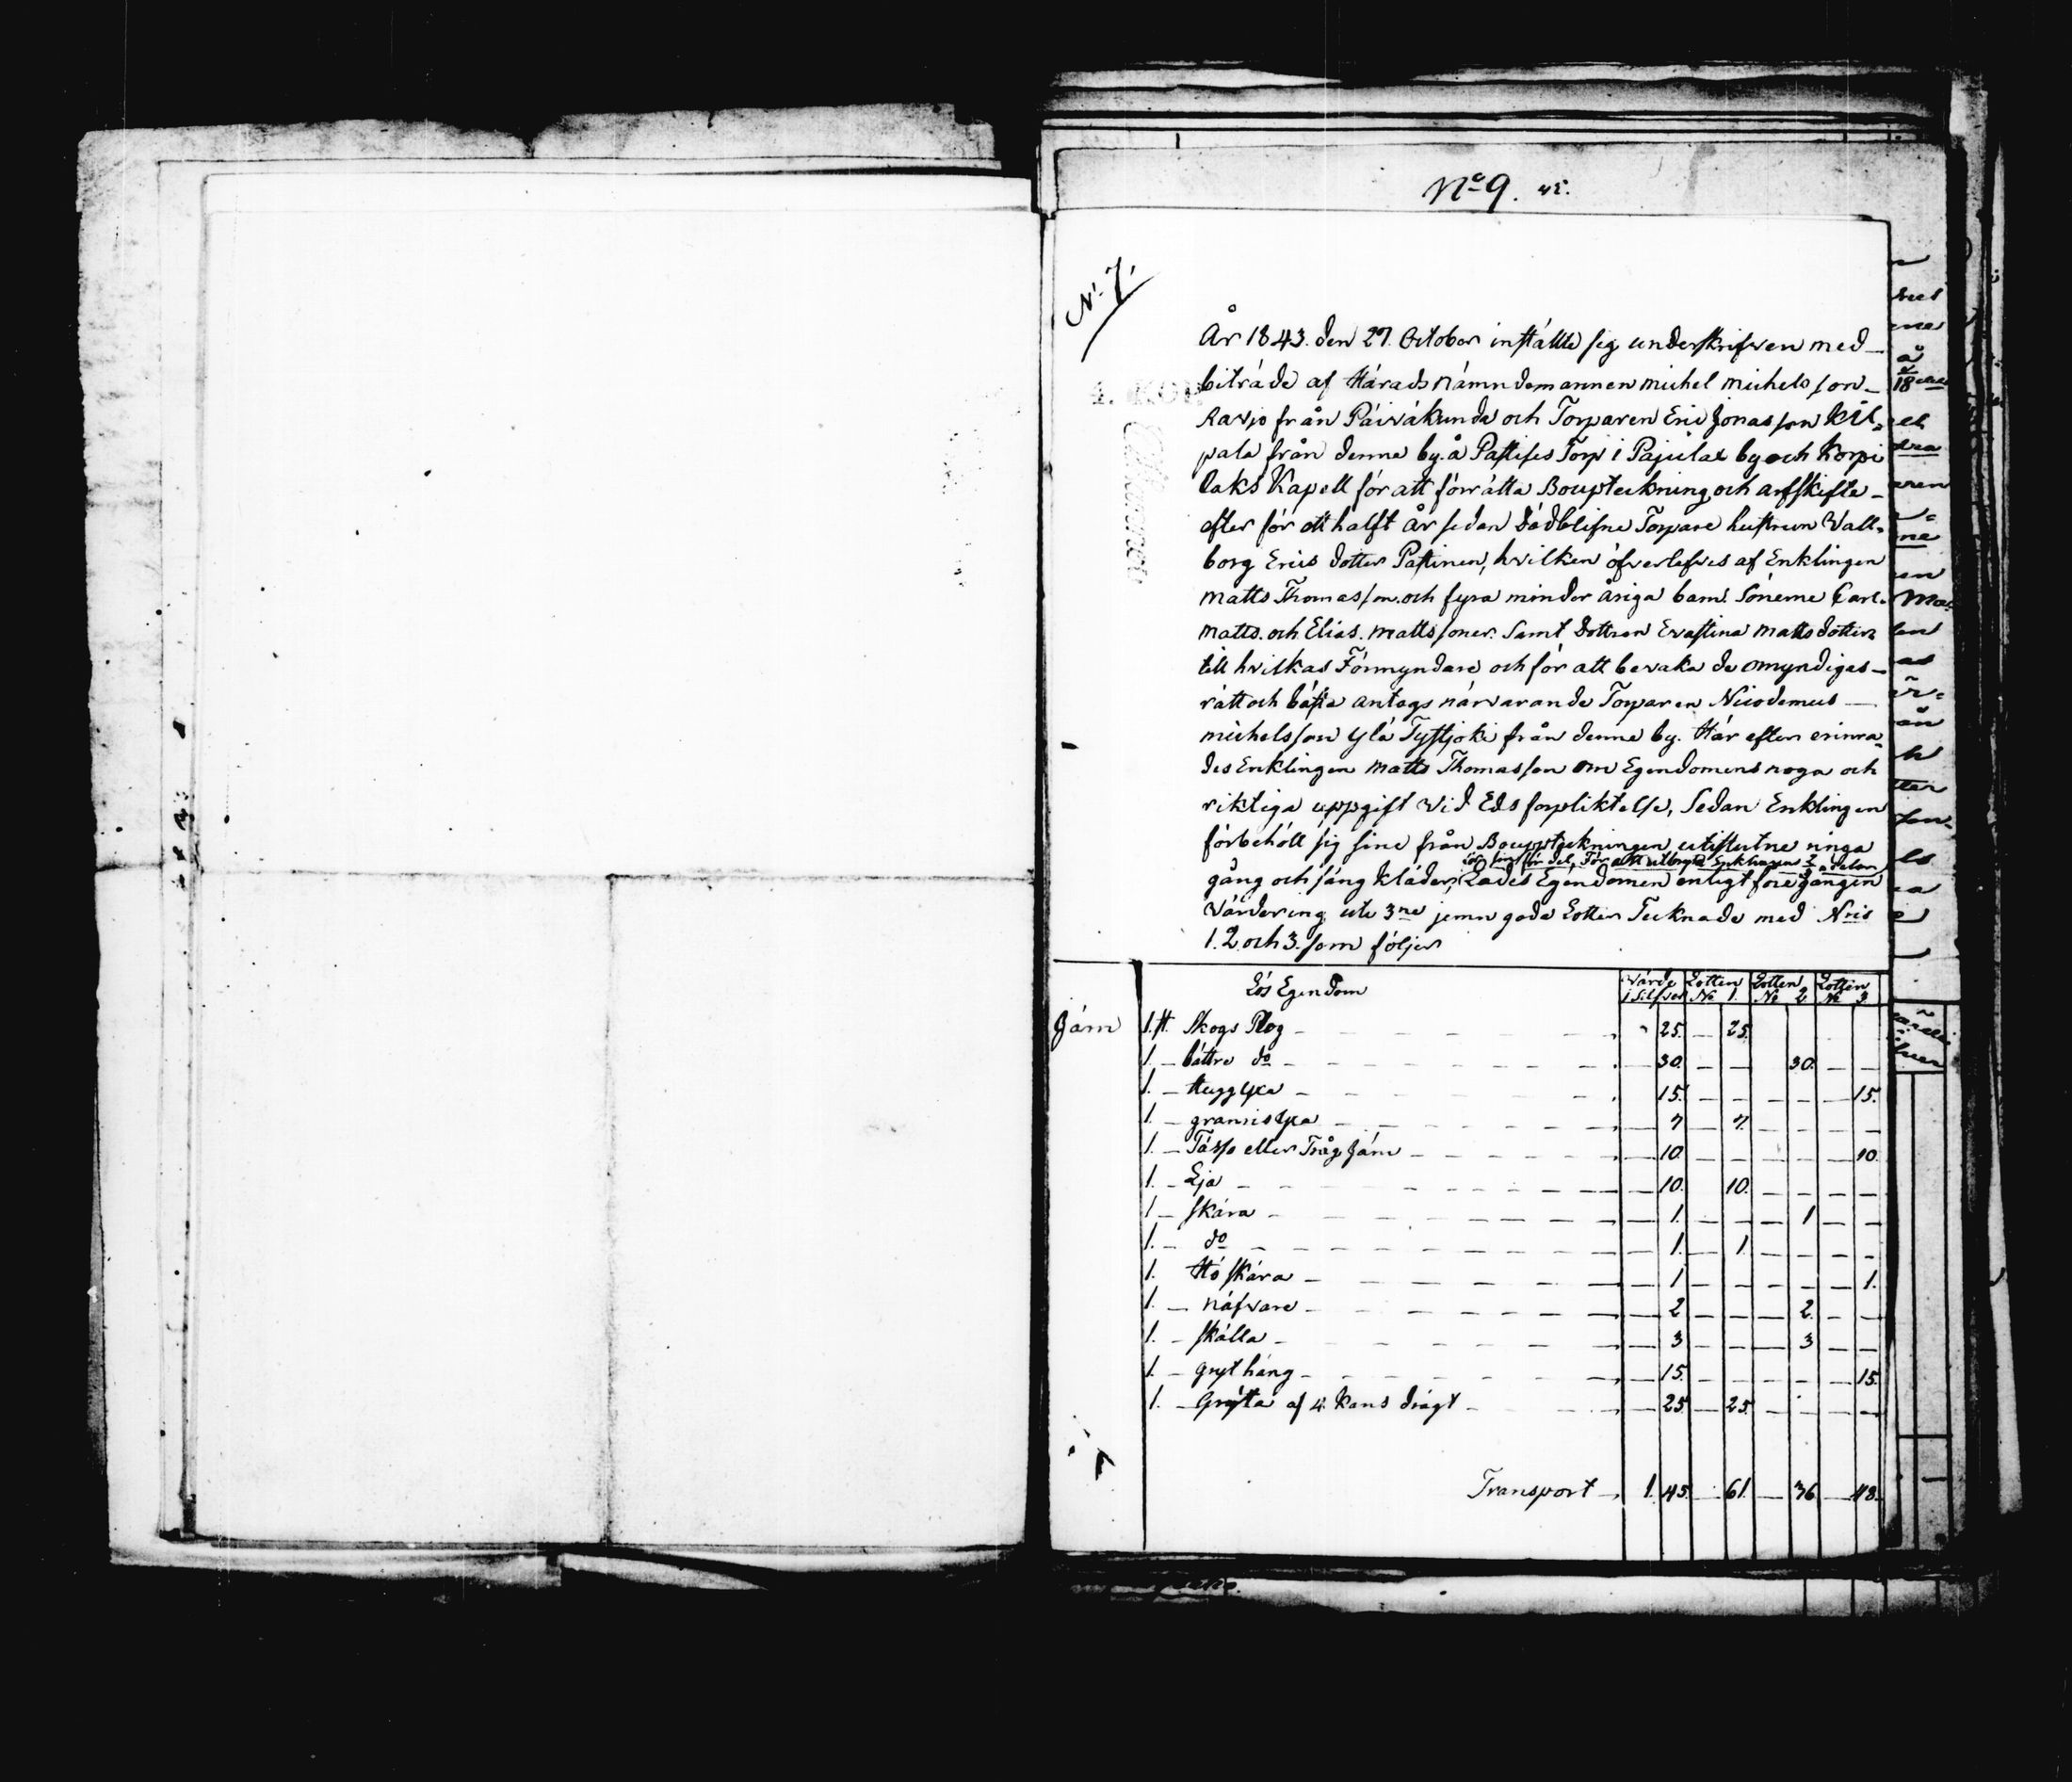 No 9. 45.
No 7.
År 1843. den 27. October inställte sig underskrifven med
biträde af Härads nämndemannen michel michelsson
Ravjo från Päiväkunda och Torparen Eric Jonasson Kil-
pala från denne by. å Pastises Torp i Pajulax by och Korpi
laks Kapell för att förrätta Boupteckning och arfskifte
efter för ett halft År sedan dödblifne Torpare hustrun Wall-
borg Erics dotter Pastinen, hvilken öfverlefves af Enklingen
Matts Thomasson. och fyra minder åriga barn. Sönerne Carl.
Matts. och Elias. Mattssöner. Samt Dottren Evastina Mattsdotter
till hvilkas Förmyndare och för att bevaka de omyndigas
rätt och bästa antogs närvarande Torparen Nicodemus
michelsson Ylä Tystjoki från denne by. Här efter erinra-
des Enklingen Matts Thomasson om Egendomens noga och
riktiga uppgift vid Eds förpliktelse, Sedan Enklingen
förbehöll sig sine från Bouppteckningen utislutne ringa
för sin fördel, För att utbryta Enklingens
gång och säng kläder, Lades Egendomen enligt föregången
Värdering uti 3ne jemn goda Lotter Tecknade med Nris
1. 2. och 3. som följer
Lös Egendom Värde i Silfver Lotten No 1. Lotten No 2 Lotten No 3
Järn 1. st. Skogs Plog 25. 25.
1. bättre do 30. 30.
1. Hugg Yxa 15. 15.
1. granris Yxa 7 7.
1. Täsjo eller Tråg Järn 10 10.
1. Lja 10. 10.
1 skära 1. 1
1. do 1. 1
1. Hö skära 1 1.
1. näfvare 2 2.
1. skälla 3 3
1. gryt häng 15. 15.
1. Gryta af 4. Kans drägt 25. 25.
Transport 1. 45. 61. 36 48.